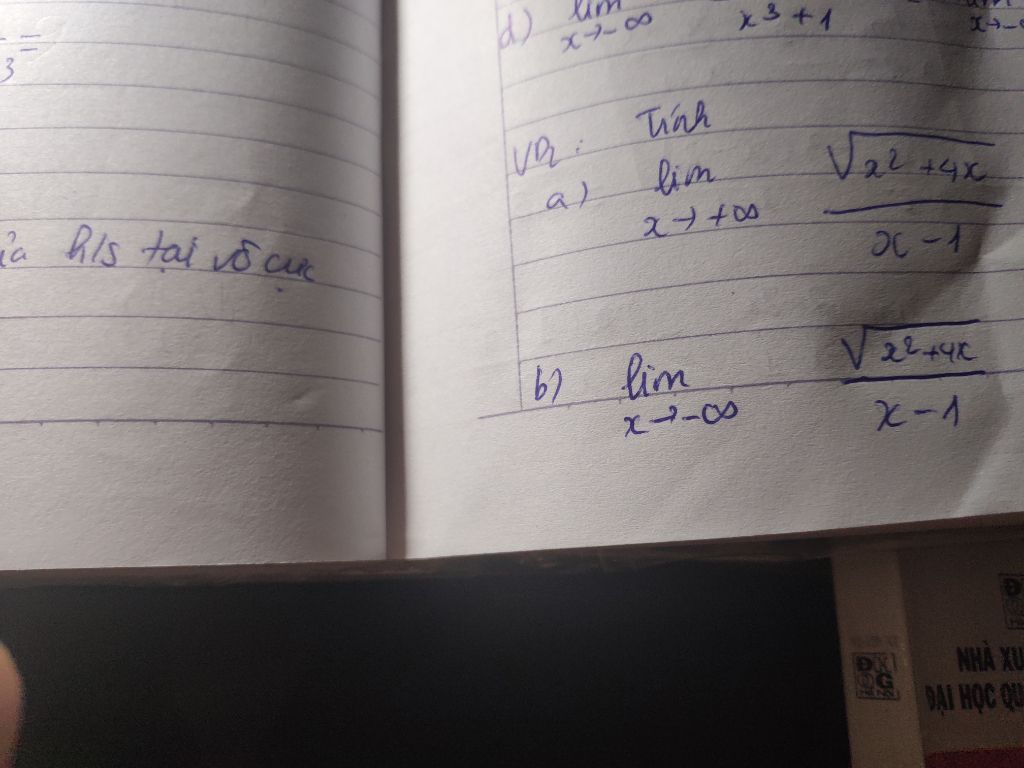 =
3
h/s tại vô cực
d) lim x³ + 1
x→-∞ x→-
VD: Tính
a) lim √x² + 4x
x→+∞ x - 1
b) lim √x² + 4x
x→-∞ x - 1
NHÀ XU
ĐẠI HỌC QU